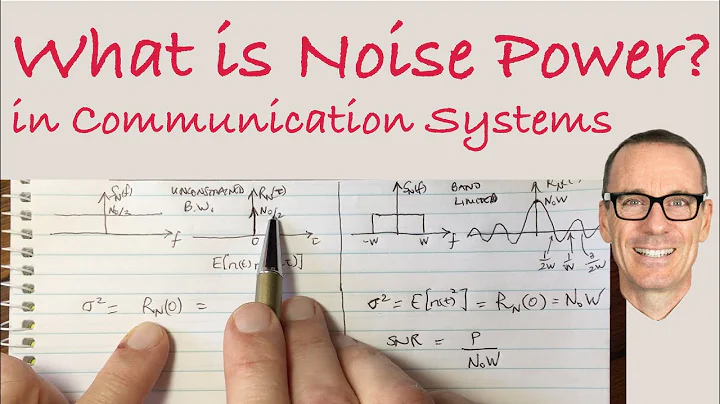 What is Noise Power?
in Communication Systems
S_N(f)
N₀/2
f
UNCONSTRAINED
B.W.
R_N(τ)
N₀/2
0
τ
E[n(t)
σ² = R_N(0) =
S_N(f)
-W
W
f
BAND
LIMITED
N₀W
1/2W
1/W
3/2W
σ² = E[n(t)²] = R_N(0) = N₀W
SNR = P/N₀W